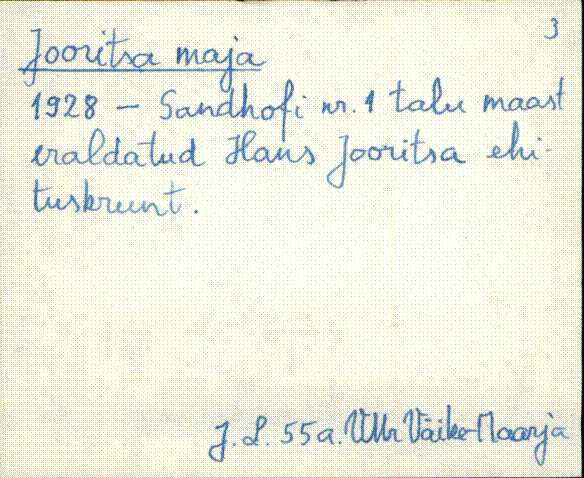 3
Jooritsa maja
1928 – Sandhofi nr. 1 talu maast
eraldatud Hans Jooritsa ehi-
tuskrunt.
J. L. 55a. VMr Väike-Maarja